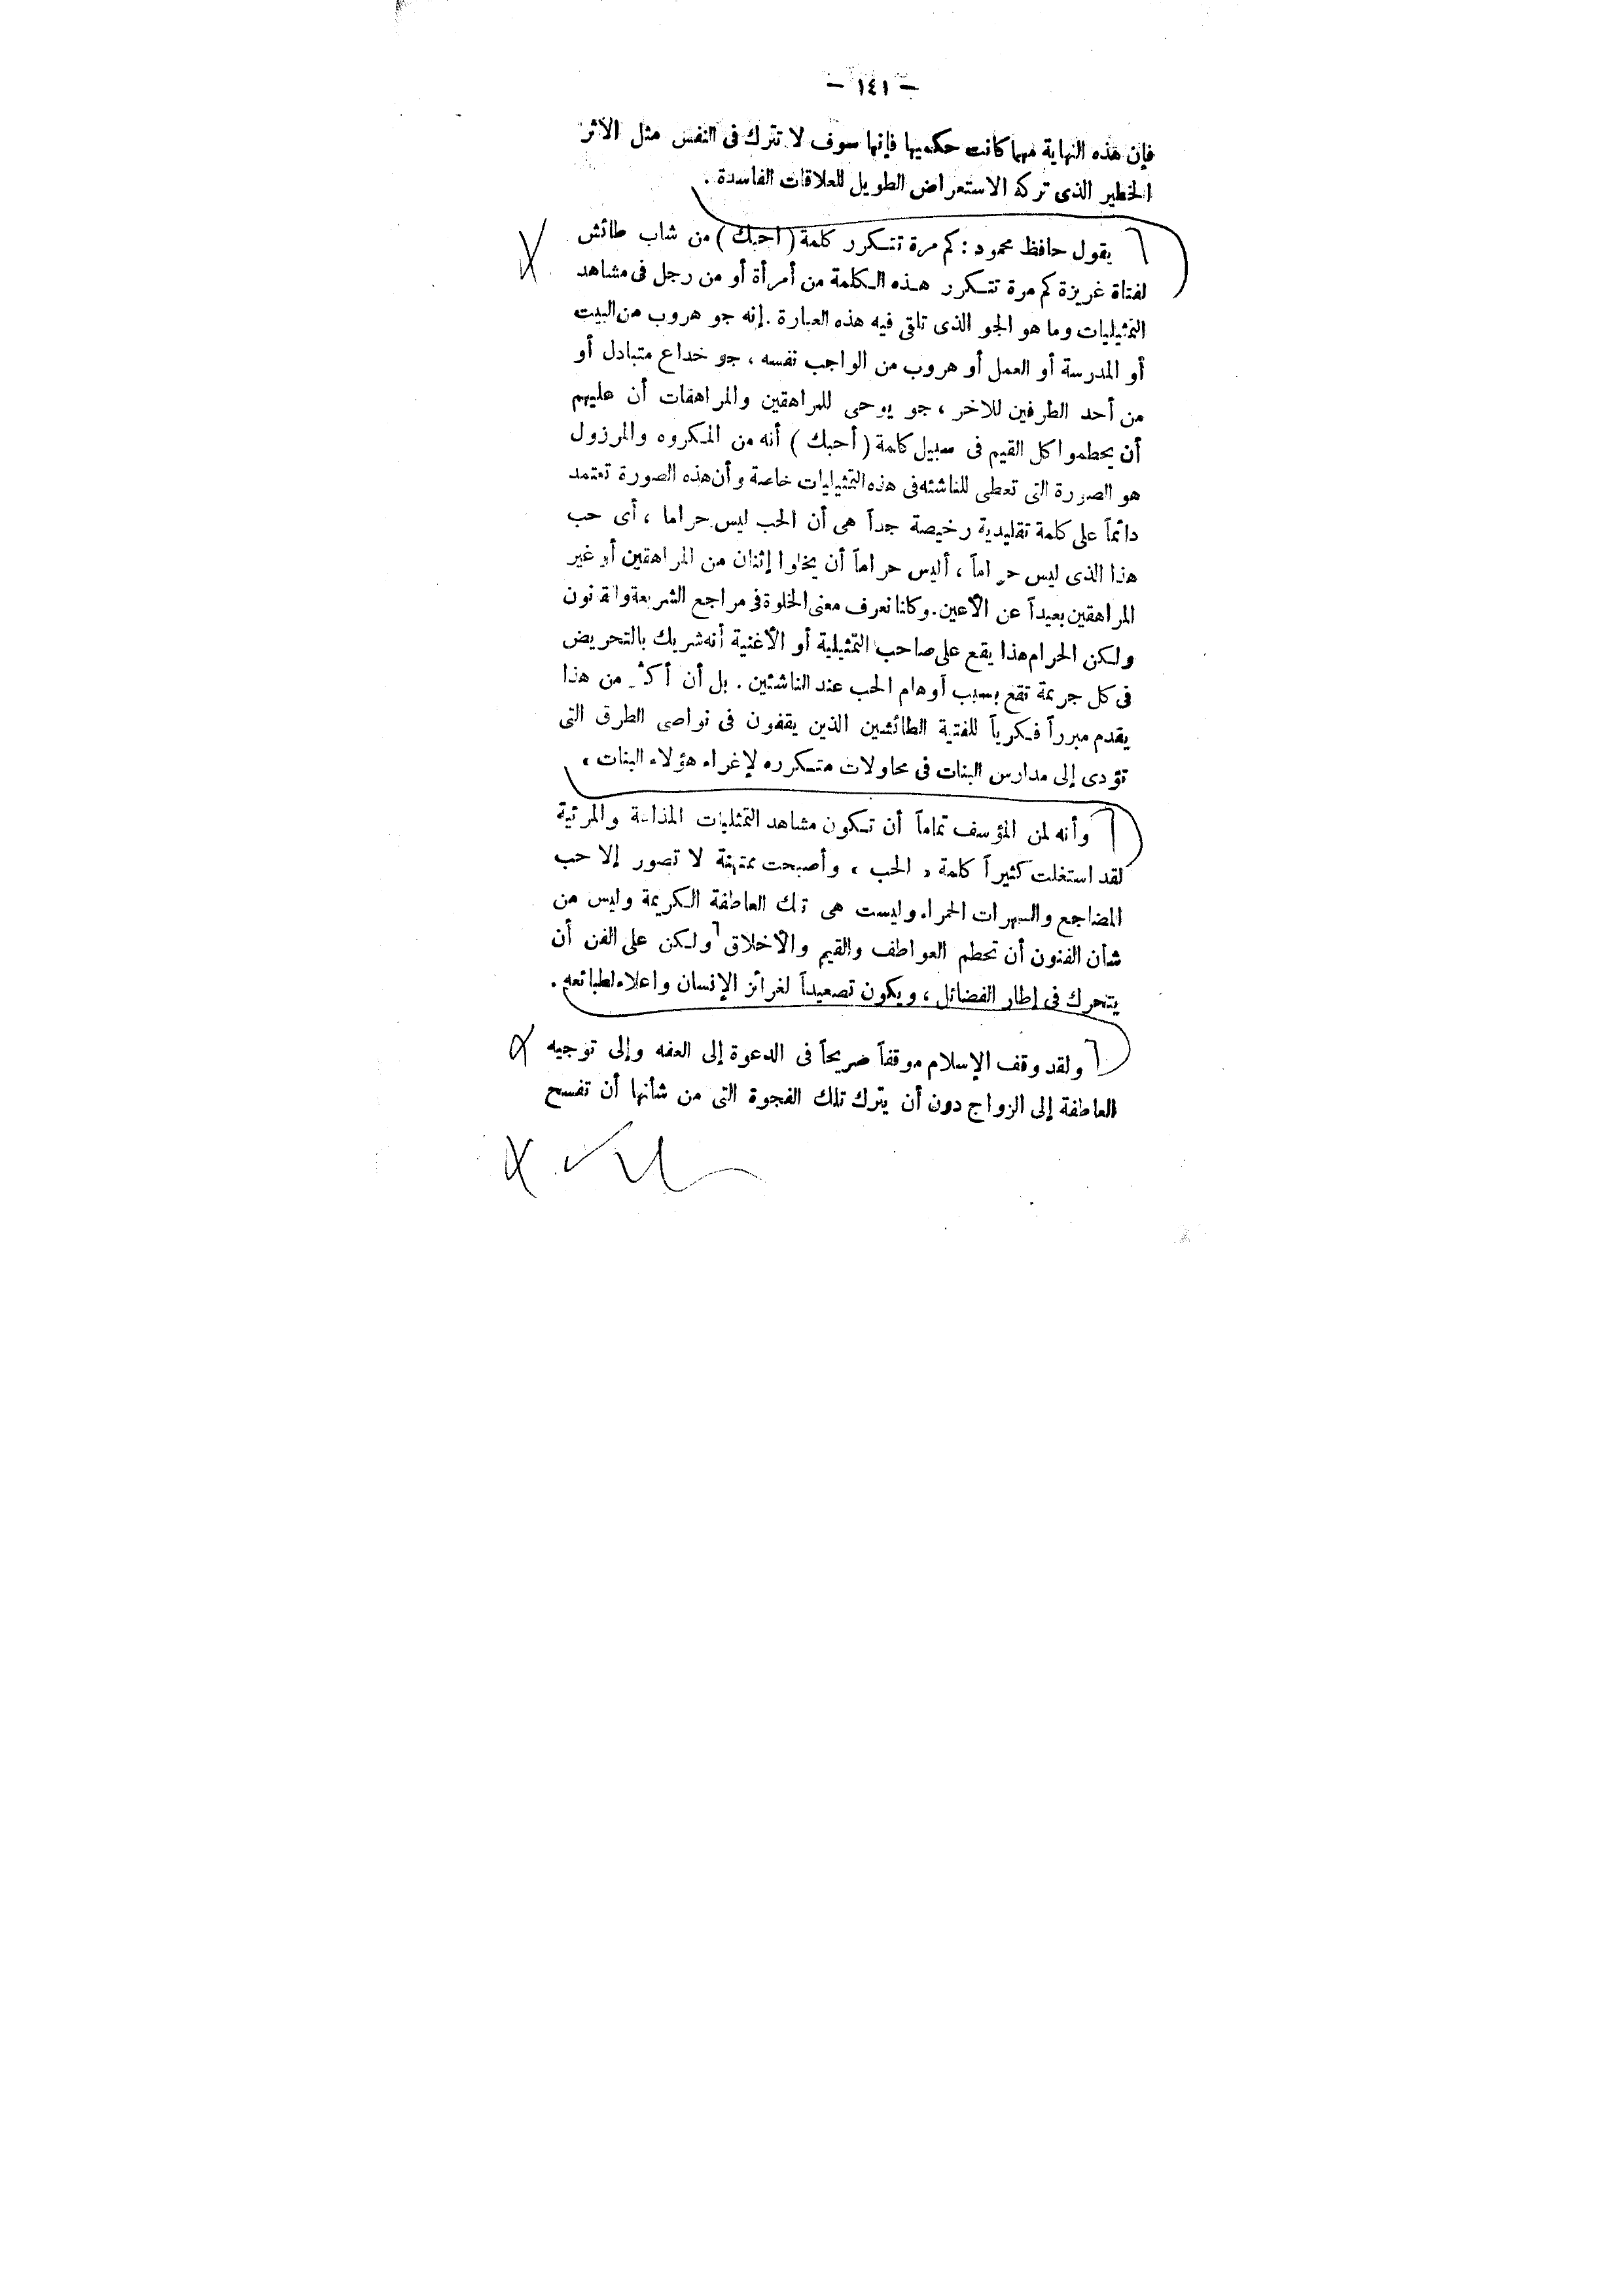 — ١٤١ —
فإن هذه النهاية مهما كانت حكميها فإنها سوف لا تترك فى النفس مثل الأثر
الخطير الذى تركه الاستعراض الطويل للعلاقات الفاسدة .
يقول حافظ محمود : كم مرة تتكرر كلمة ( أحبك ) من شاب طائش
لفتاة غريزة كم مرة تتكرر هذه الكلمة من أمرأة أو من رجل فى مشاهد
التمثيليات وما هو الجو الذى تلقى فيه هذه العبارة . إنه جو هروب من البيت
أو المدرسة أو العمل أو هروب من الواجب نفسه ، جو خداع متبادل أو
من أحد الطرفين للاخر ، جو يوحى للمراهقين والمراهقات أن عليهم
أن يحطموا كل القيم فى سبيل كلمة ( أحبك ) أنه من المكروه والمرزول
هو الصورة التى تعطى للناشئه فى هذه التمثيليات خاصة وأن هذه الصورة تعتمد
دائماً على كلمة تقليدية رخيصة جداً هى أن الحب ليس حراما ، أى حب
هذا الذى ليس حراماً ، أليس حراماً أن يخلوا إثنان من المراهقين أو غير
المراهقين بعيداً عن الأعين . وكلنا نعرف معنى الخلوة فى مراجع الشريعة والقانون
ولكن الحرام هذا يقع على صاحب التمثيلية أو الأغنية أنه شريك بالتحريض
فى كل جريمة تقع بسبب أوهام الحب عند الناشئين . بل أن أكثر من هذا
يقدم مبرراً فكرياً للفتية الطائشين الذين يقفون فى نواصى الطرق التى
تؤدى إلى مدارس البنات فى محاولات متكرره لإغراء هؤلاء البنات ،
وأنه لمن المؤسف تماماً أن تكون مشاهد التمثليات المذاعة والمرئية
لقد استغلت كثيراً كلمة « الحب » وأصبحت ممتهنة لا تصور إلا حب
المضاجع والسهرات الحمراء وليست هى تلك العاطفة الكريمة وليس من
شأن الفنون أن تحطم العواطف والقيم والأخلاق ولكن على الفن أن
يتحرك فى إطار الفضائل ، ويكون تصعيداً لغرائز الإنسان واعلاء لطبائعه .
ولقد وقف الإسلام موقفاً صريحاً فى الدعوة إلى العفه وإلى توجيه
العاطفة إلى الزواج دون أن يترك تلك الفجوة التى من شأنها أن تفسح